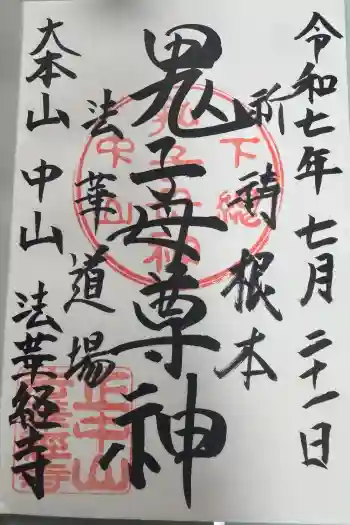 令和七年 七月 二十一日
祈祷根本
鬼子母尊神
法華道場
大本山 中山 法華経寺
下総
中山
鬼子母神
正中山
法華経寺